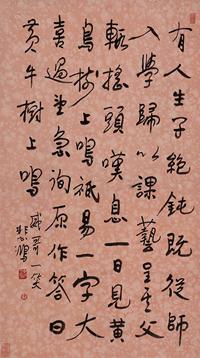 有人生子絕鈍既從師
入學歸以課藝呈其父
輒搖頭嘆息一日見黃
鳥樹上鳴祇易一字大
喜過望急詢原作答曰
黃牛樹上鳴
盛哥一笑
悲鴻